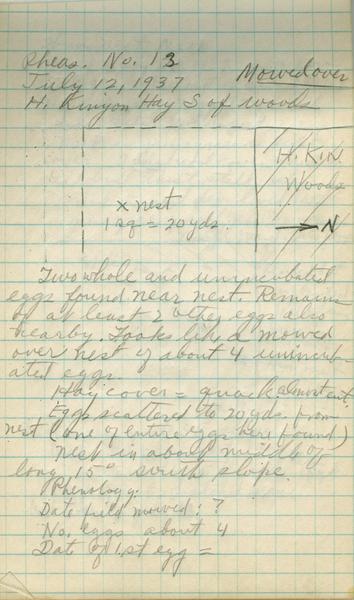 Pheas. No. 13
Mowed over
July 12, 1937
H. Kinyon Hay S of woods
H. Kin.
Woods
x nest
1 sq = 20 yds.
N
Two whole and unincubated
eggs found near nest. Remains
of at least 2 other eggs also
nearby. Looks like a mowed
over nest of about 4 unincub-
ated eggs.
Hay cover = quack almost ent.
Eggs scattered to 20 yds. from
nest (one of entire eggs here found)
Nest in about middle of
long 15° south slope.
Phenology:
Date field mowed: ?
No. eggs about 4
Date of 1st egg =